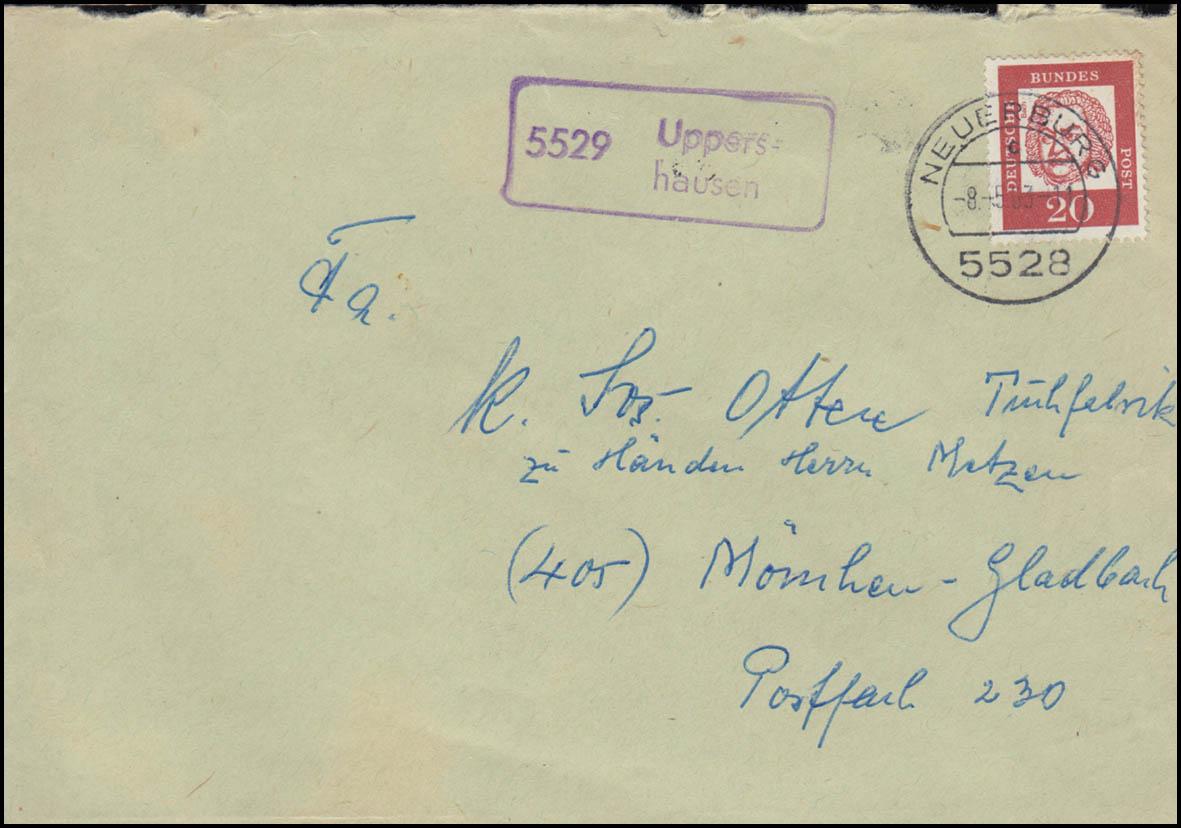 5529 Uppers-
hausen
DEUTSCHE BUNDES POST
20
NEUERBURG
c
-8.-5.63-11
5528
Fa.
K. Jos. Otten Tuchfabrik
zu Händen Herrn Metzen
(405) Mönchen-Gladbach
Postfach 230